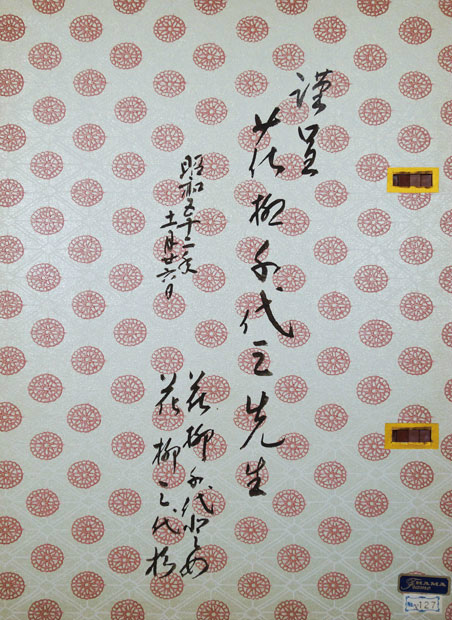 謹呈
花柳千代三先生
昭和五十二年
十一月廿六日
花柳千代
花柳三代
127